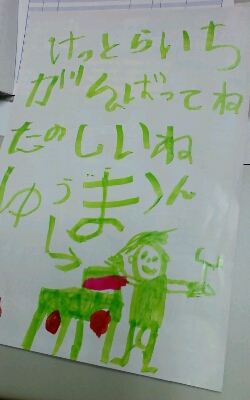 けっとらいち
がんばってね
たのしいね
ゆうまくん
より